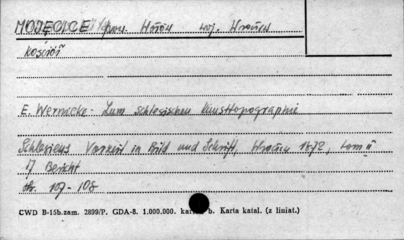 MOJĘCICE pow. Wołów woj. Wrocław
Kościół
E. Wernicke - Zum schlesischen Kunsttopographie
Schlesiens Vorzeit in Bild und Schrift, Wrocław 1872, tom II
17 Bericht
str. 107-108
CWD B-15b.zam. 2899/P. GDA-8. 1.000.000. b. Karta katal. (z liniat.)